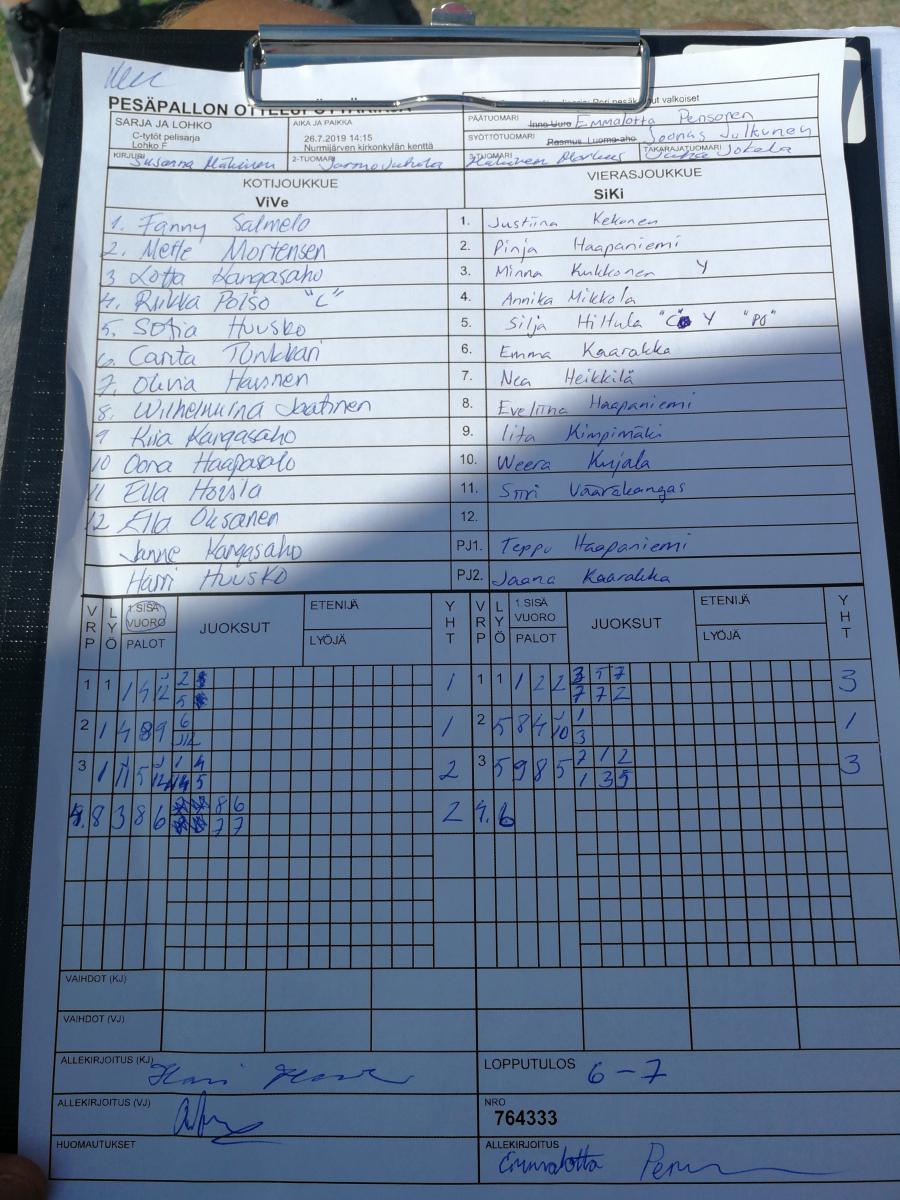 PESÄPALLON
nut valkoiset
SARJA JA LOHKO
C-tytöt pelisarja
Lohko F
AIKA JA PAIKKA
26.7.2019 14:15
Nurmijärven kirkonkylän kenttä
PÄÄTUOMARI Emmalotta Pensonen
SYÖTTÖTUOMARI Rasmus Luoma-aho Joonas Julkunen
KIRJURI Susanna Mäkinen
2-TUOMARI Jarmo
3-TUOMARI Markus
TAKARAJATUOMARI Jukka Jokela
KOTIJOUKKUE
ViVe
VIERASJOUKKUE
SiKi
1. Fanny Salmelo
1. Justiina Kekonen
2. Mette Mortensen
2. Pinja Haapaniemi
3 Lotta Kangasaho
3. Minna Kukkonen Y
4. Riikka Poiso "C"
4. Annika Mikkola
5. Sofia Huusko
5. Silja Hiltula "C" Y "PJ"
6. Carita Tunkkari
6. Emma Kaarakka
7. Olivia Hausnen
7. Nea Heikkilä
8. Wilhelmiina Jaatinen
8. Eveliina Haapaniemi
9 Kiia Kangasaho
9. Iita Kimpimäki
10 Oona Haapasalo
10. Weera Kujala
11 Ella Horsla
11. Siiri Vaarakangas
12 Ella Oksanen
12.
Janne Kangasaho
PJ1. Teppo Haapaniemi
Harri Huusko
PJ2. Jaana Kaarakka
VRP LYÖ 1.SISÄ VUORO PALOT JUOKSUT ETENIJÄ LYÖJÄ YHT
VRP LYÖ 1.SISÄ VUORO PALOT JUOKSUT ETENIJÄ LYÖJÄ YHT
1 1 1 4 12 2 5 1
1 1 1 2 2 3 5 7 7 7 2 3
2 1 4 8 9 6 1
2 5 8 4 10 1 3 1
3 1 11 5 12 1 4 5 2
3 5 9 8 5 7 1 2 1 3 5 3
4. 8 3 8 6 8 6 7 7 2
4. 6
VAIHDOT (KJ)
VAIHDOT (VJ)
ALLEKIRJOITUS (KJ)
LOPPUTULOS 6-7
ALLEKIRJOITUS (VJ)
NRO
764333
HUOMAUTUKSET
ALLEKIRJOITUS
Emmalotta